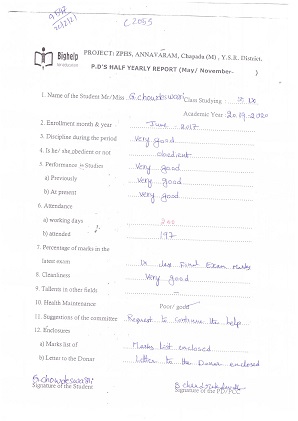 C2053
Bighelp
for education
PROJECT: ZPHS, ANNAVARAM, Chapadu (M), Y.S.R. District.
P.D'S HALF YEARLY REPORT (May/ November- )
1. Name of the Student Mr/Miss G.chowdeswari Class Studying :
Academic Year 2019-2020
2. Enrollment month & year June 2017
3. Discipline during the period Very good
4. Is he/ she,obedient or not obedient
5. Performance in Studies Very good
a) Previously Very good
b) At present very good
6. Attendance
a) working days 200
b) attended 197
7. Percentage of marks in the
latest exam Final Exam marks
8. Cleanliness Very good
9. Tallents in other fields –
10. Health Maintenance Poor/ good
11. Suggestions of the committee Request to continue the help
12. Enclosures
a) Marks list of Marks list enclosed
b) Letter to the Donar Letter to the Donar enclosed
G.chowdeswari
Signature of the Student Signature of the PD/PCC